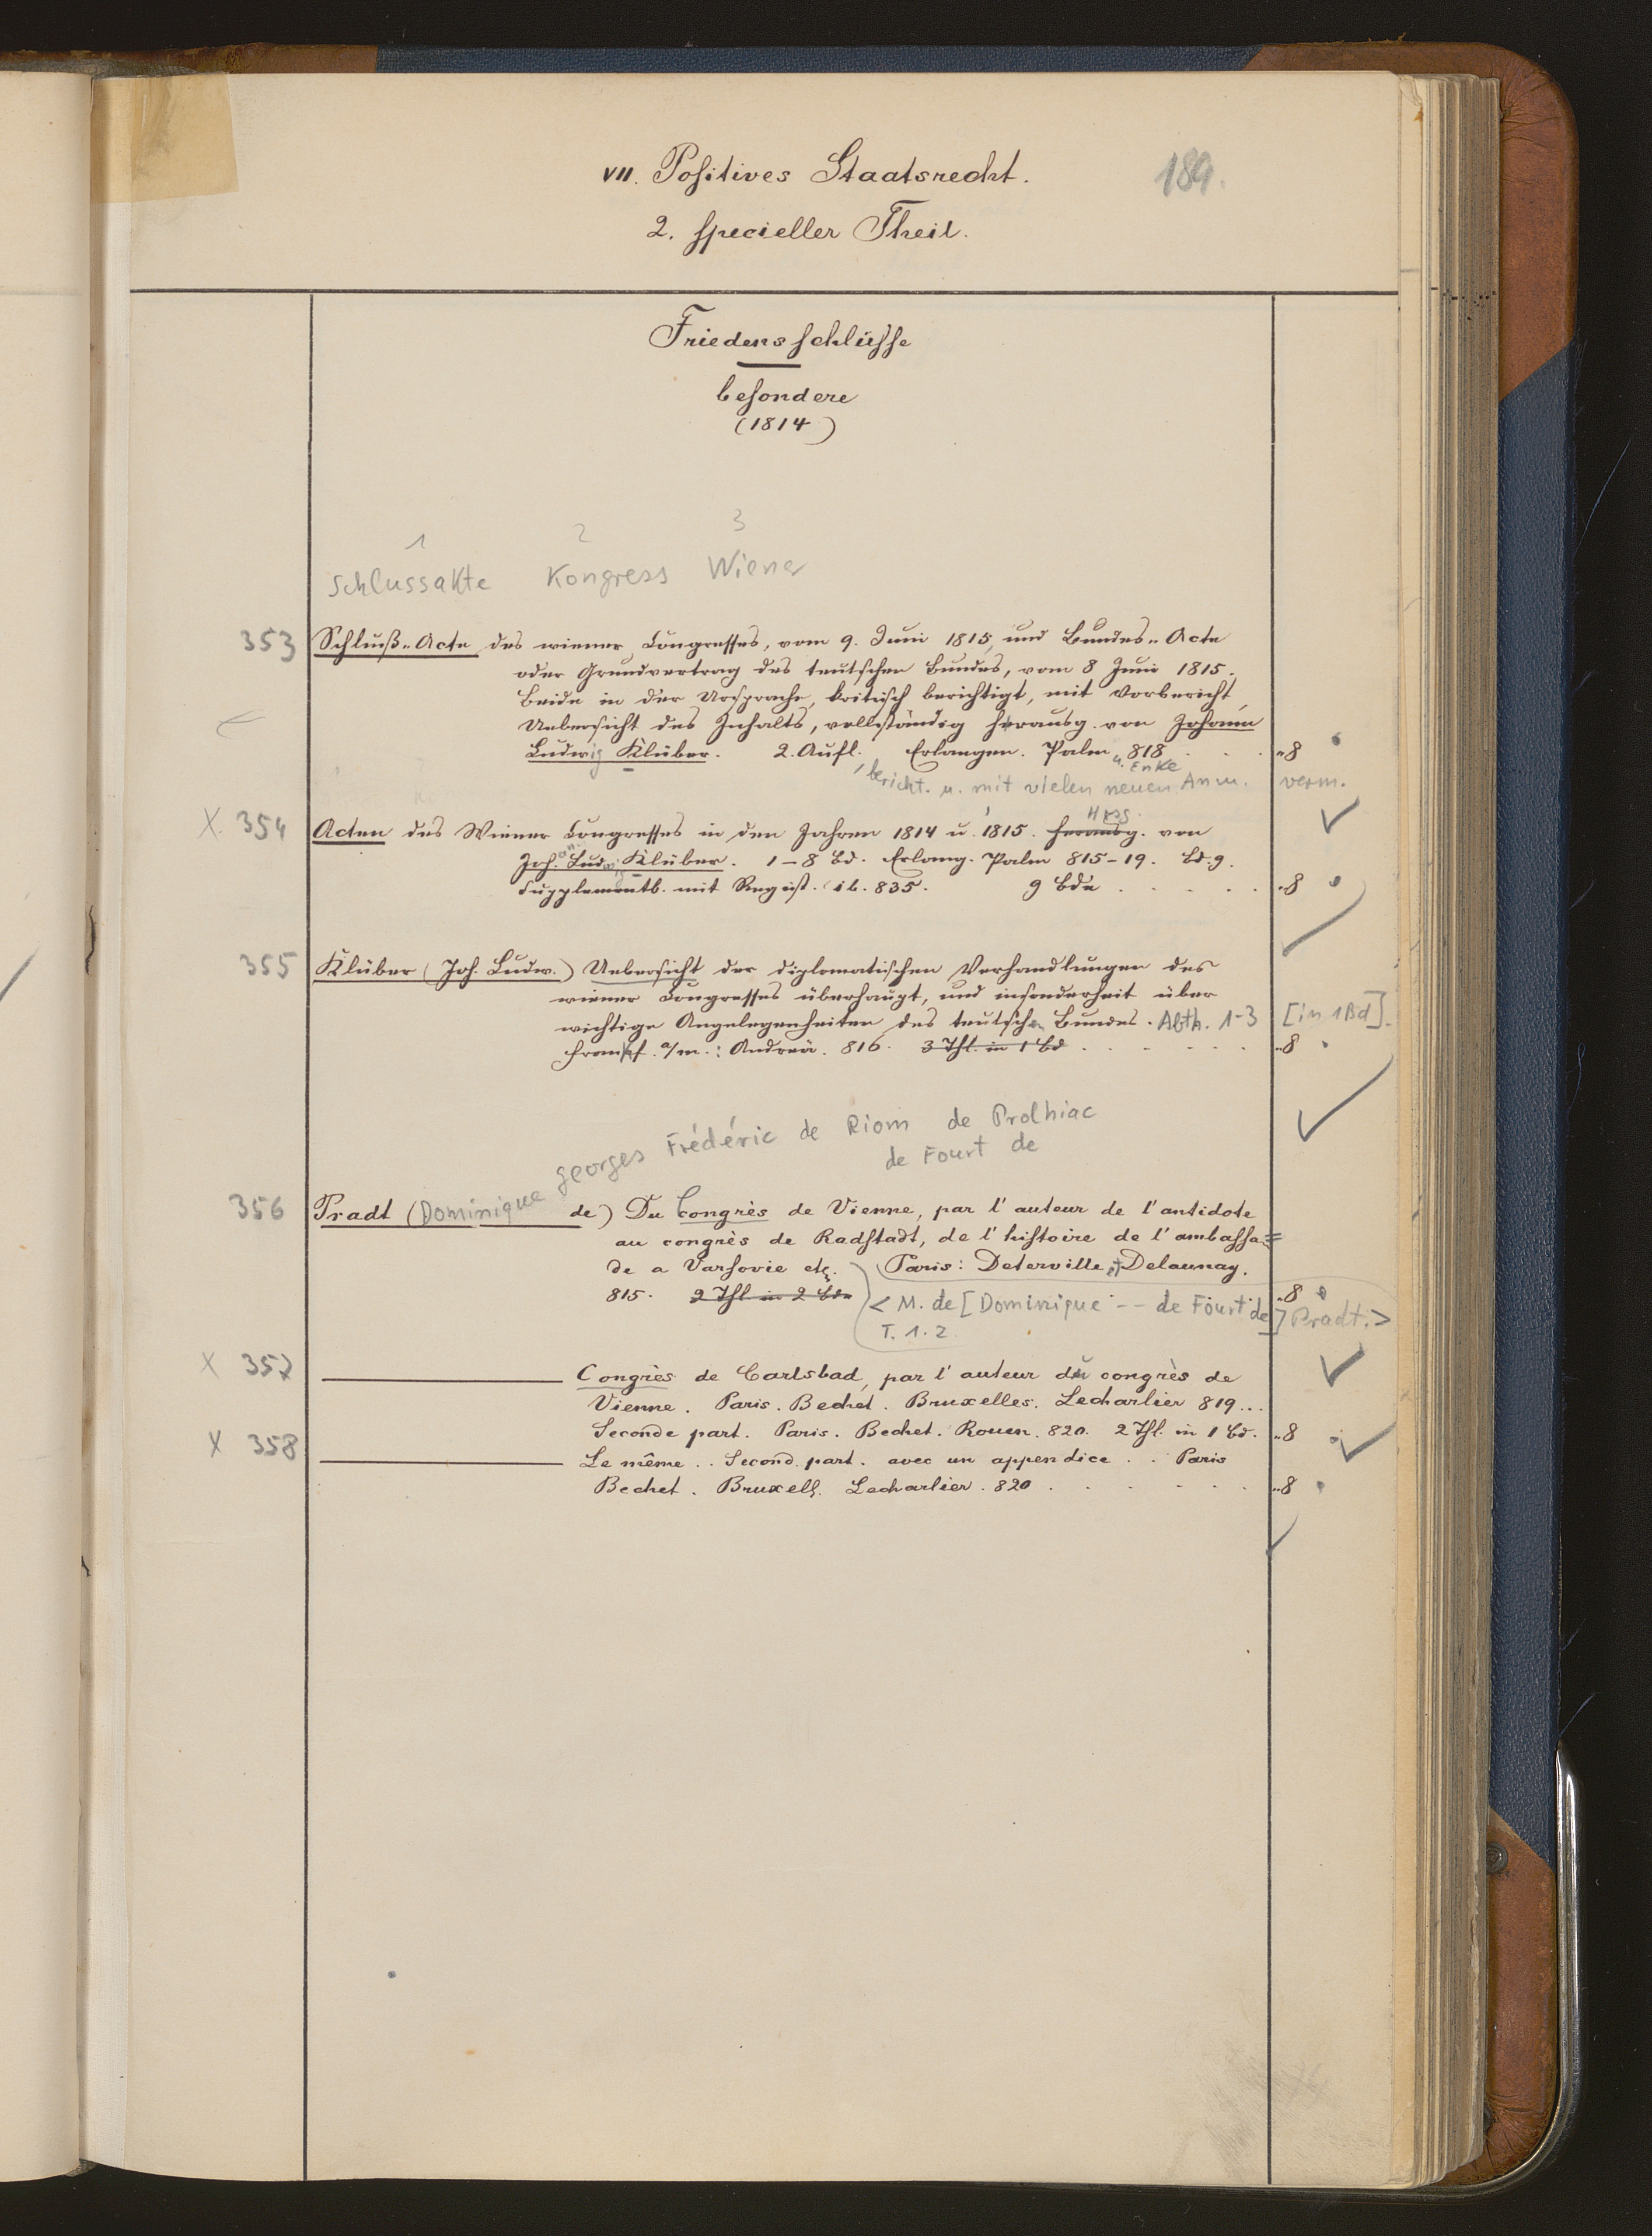 VII. Positives Staatsrecht. 189.
2. specieller Theil.
Friedensschlüsse
besondere
(1814)
1 2 3
Schlussakte Kongress Wiener
353 Schluß-Acte des wiener Congresses, vom 9. Juni 1815, und Bundes-Acte
oder Grundvertrag des teutschen Bundes, vom 8 Juni 1815.
Beide in der Ursprache, kritisch berichtigt, mit Vorbericht,
Uebersicht des Inhalts, vollständig herausg. von Johann
Ludwig Klüber. 2. Aufl. Erlangen. Palm u. Enke 818 . . . „8
, bericht. u. mit vielen neuen Anm. verm.
X. 354 Acten des Wiener Congresses in den Jahren 1814 u. 1815. herausg. Hrsg. von
Joh. Ludwig Klüber. 1-8 Bd. Erlang. Palm 815-19. Bd. 9.
Supplementb. mit Regist. ib. 835. 9 Bde . . . . . „8
355 Klüber (Joh. Ludw.) Uebersicht der diplomatischen Verhandlungen des
wiener Congresses überhaupt, und insonderheit über
wichtige Angelegenheiten des teutschen Bundes. Abth. 1-3 [in 1 Bd].
Frankf. a/m.: Andreä. 816. 3 Thl. in 1 Bd . . . . . . „8
Georges Frédéric de Riom de Prolhiac
de Fourt de
356 Pradt (Dominique de) Du Congrès de Vienne, par l'auteur de l'antidote
au congrès de Radstadt, de l'histoire de l'ambassa=
de a Varsovie etc. Paris: Deterville et Delaunay.
815. 2 Thl in 2 Bde „8
< M. de [Dominique -- de Fourt de] Pradt.>
T. 1. 2
X 357 Congrès de Carlsbad, par l'auteur du congrès de
Vienne. Paris. Bechet. Bruxelles. Lecharlier 819...
Seconde part. Paris. Bechet. Rouen. 820. 2 Thl. in 1 Bd. „8
X 358 Le même .. Second. part. avec un appendice . . Paris
Bechet. Bruxell. Lecharlier. 820 . . . . . . „8